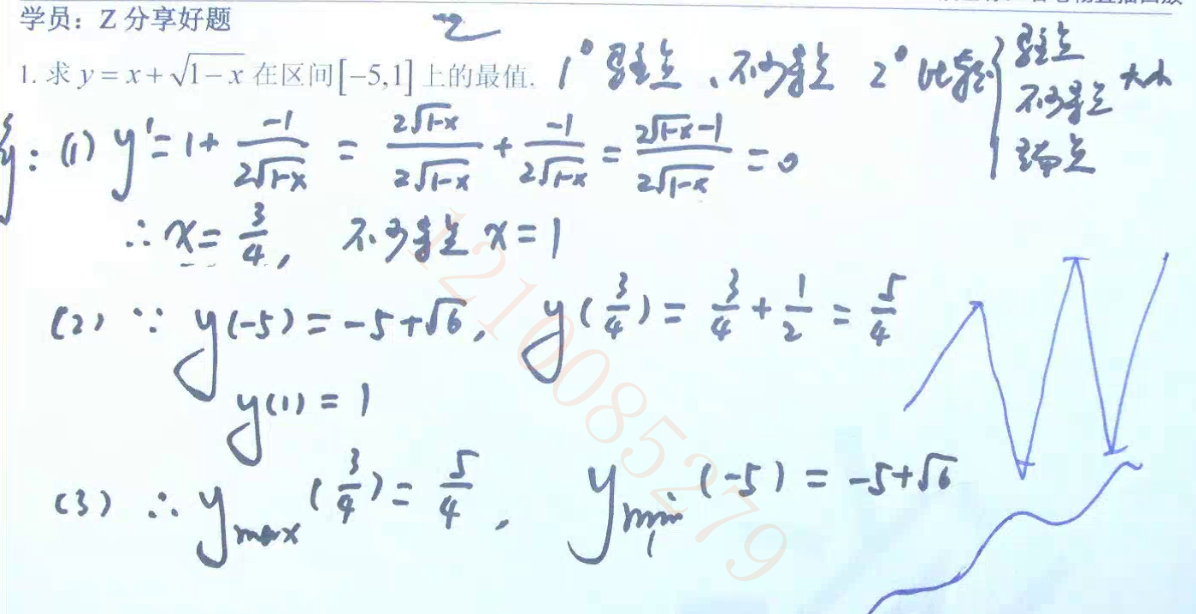 学员：Z 分享好题
Z
1. 求 y = x + √(1-x) 在区间[-5,1]上的最值. 1° 驻点、不可导点 2° 比较{驻点 不可导点 端点 大小
解: (1) y' = 1 + -1/(2√(1-x)) = 2√(1-x)/(2√(1-x)) + -1/(2√(1-x)) = (2√(1-x)-1)/(2√(1-x)) = 0
∴ x = 3/4, 不可导点 x = 1
(2) ∵ y(-5) = -5+√6, y(3/4) = 3/4 + 1/2 = 5/4
y(1) = 1
(3) ∴ y max (3/4) = 5/4, y min (-5) = -5+√6
1210085279